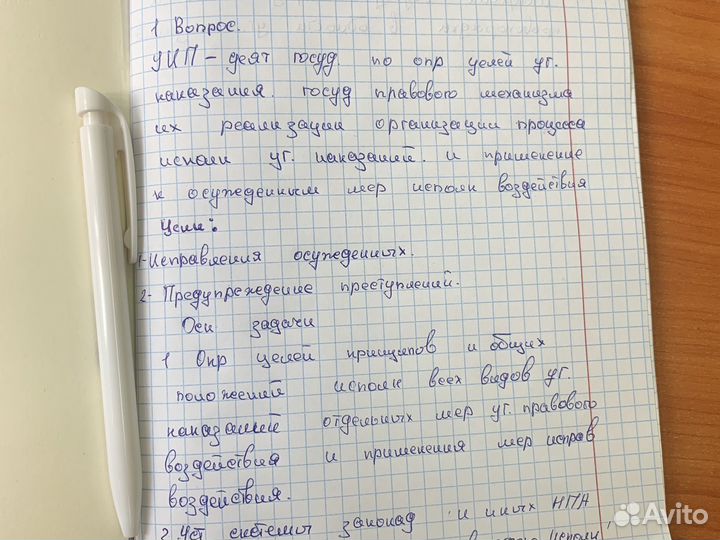 1 Вопрос.
УИП - деят госуд. по опр целей уг.
наказания. госуд правового механизма
их реализации организации процесса
исполн уг. наказаний. и применение
к осужденным мер исполн воздействия
Цели:
1- Исправления осужденных.
2- Предупреждение преступлений.
Осн задачи
1 Опр целей принципов и общих
положений исполн всех видов уг.
наказаний отдельных мер уг. правового
воздействия и применения мер исправ
воздействия.
2 Уст системы законод. и иных НПА
исполн
Avito